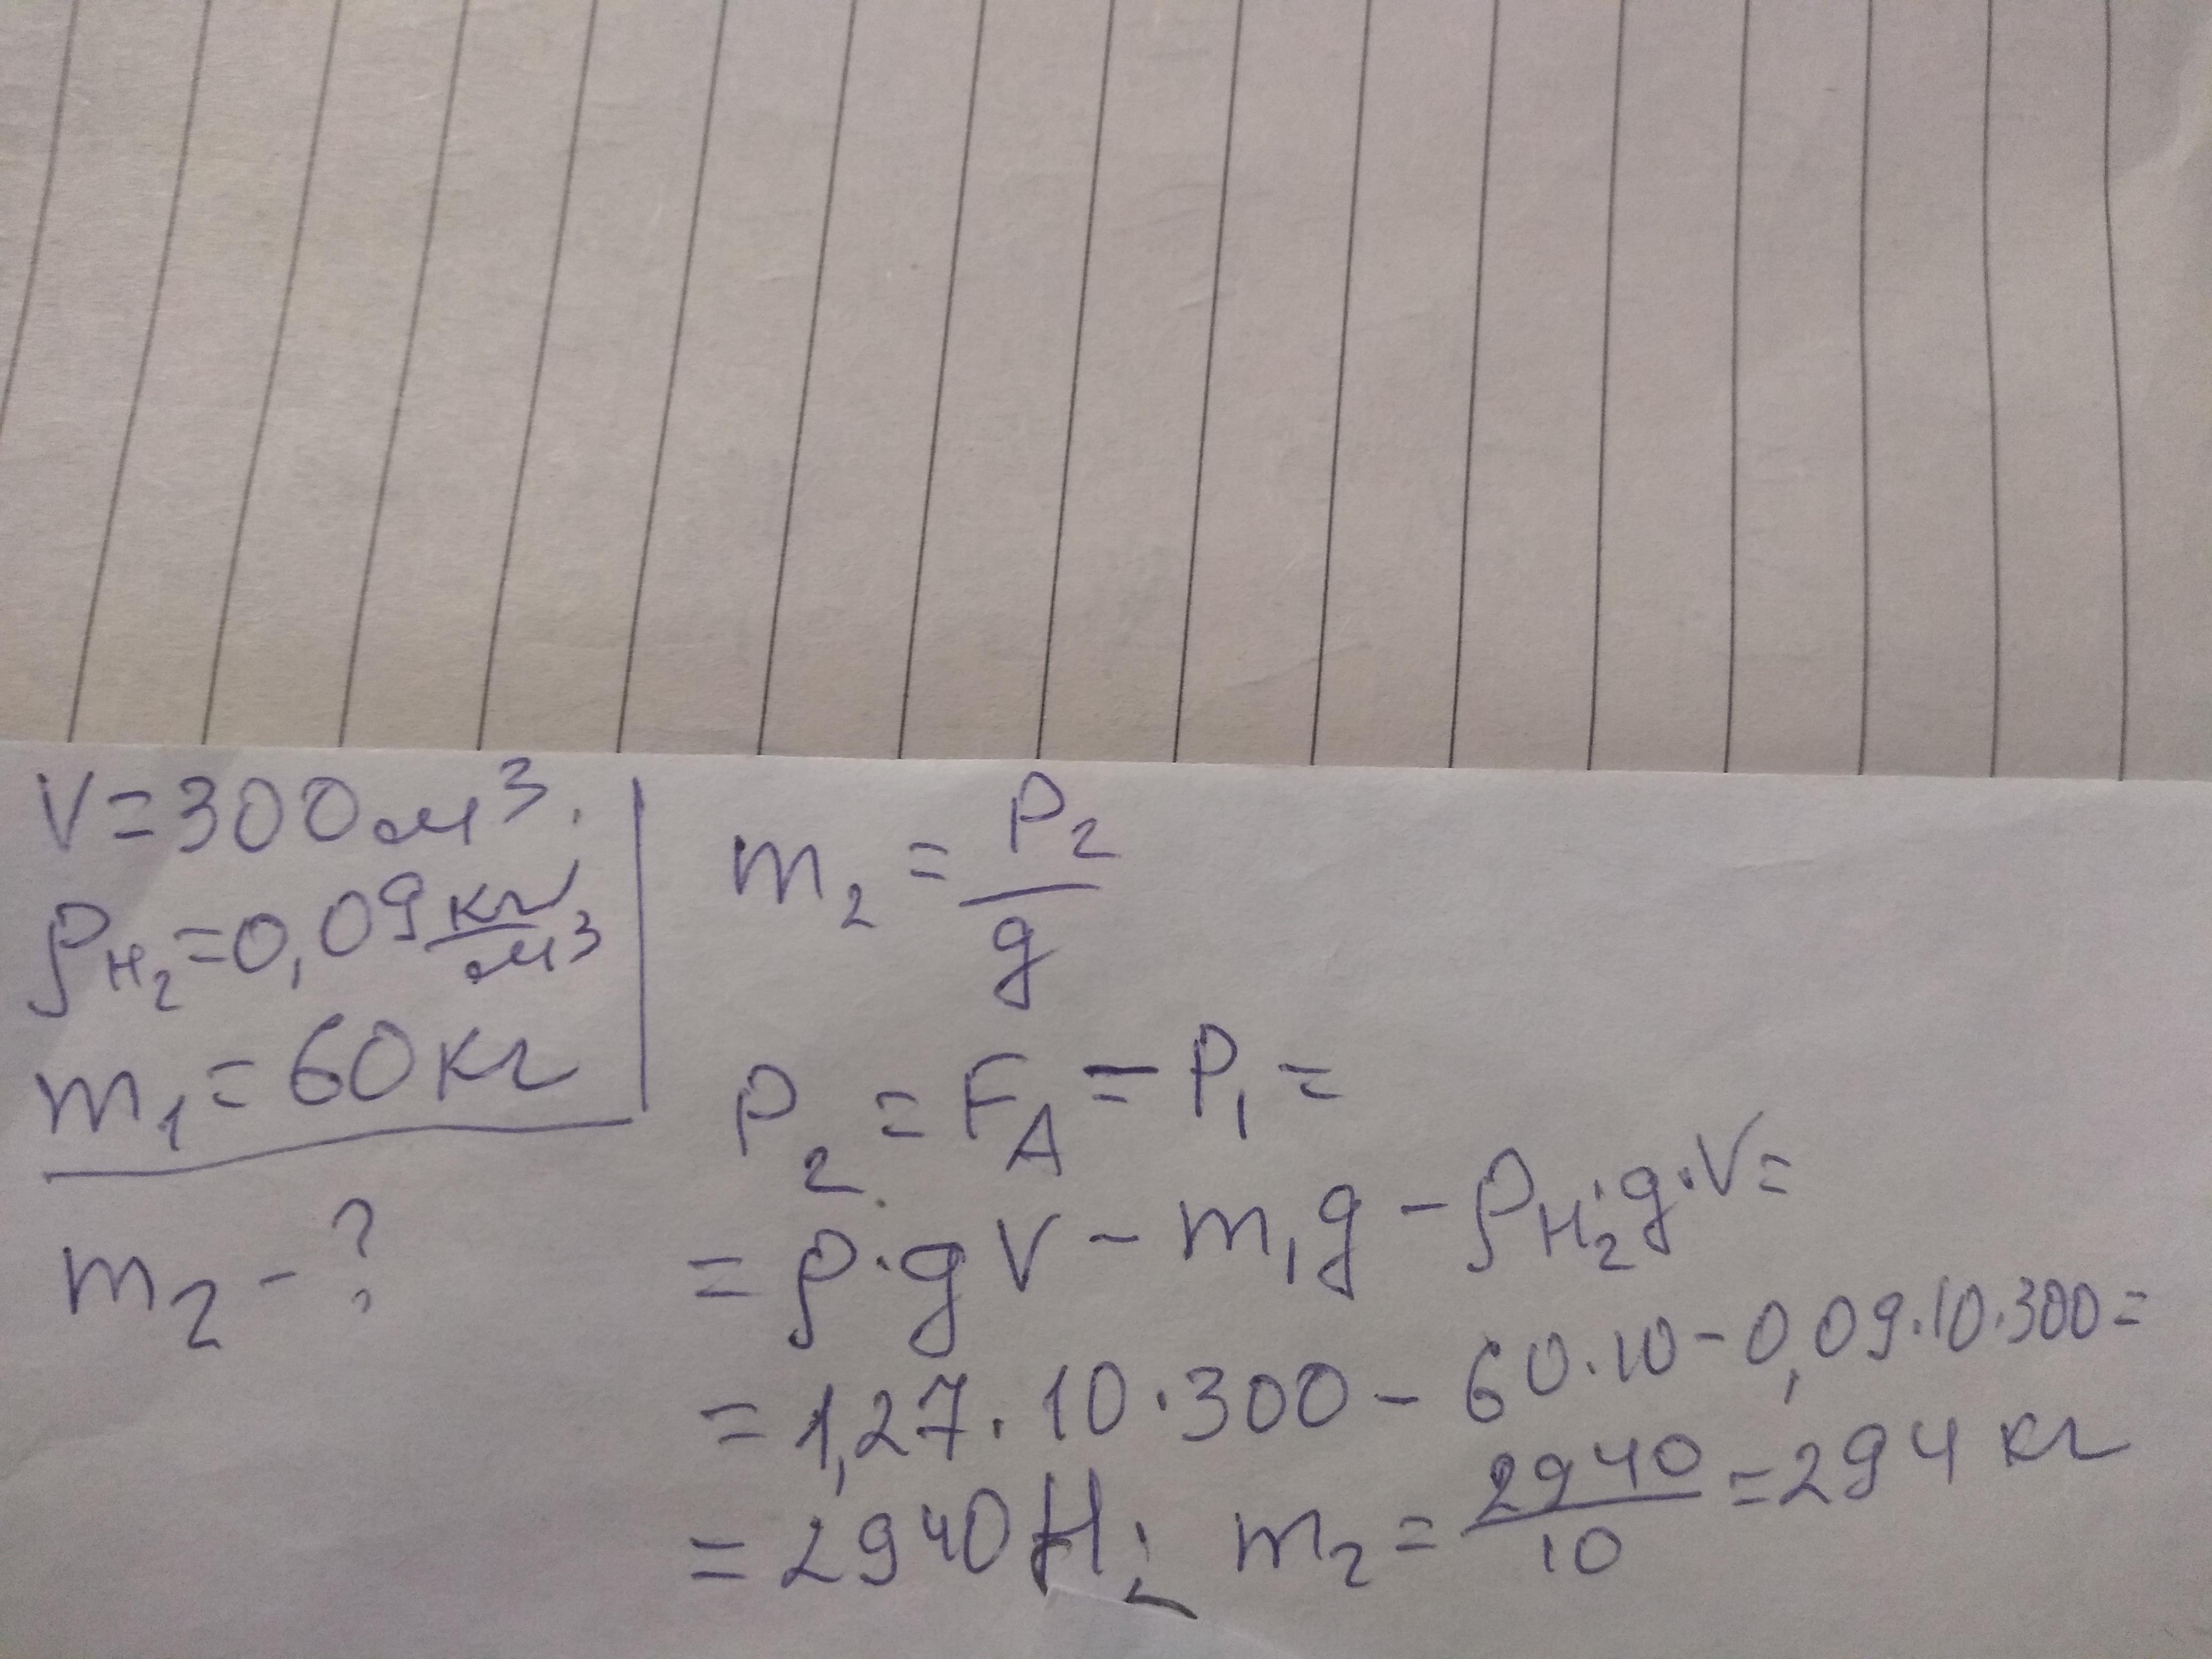 V=300м³.
ρH₂=0,09 кг/м³
m₁=60кг
m₂-?
m₂ = P₂/g
P₂ = FA = P₁ =
= ρ·gV - m₁g - ρH₂·g·V=
= 1,27·10·300 - 60·10 - 0,09·10·300=
= 2940 Н; m₂= 2940/10 =294 кг